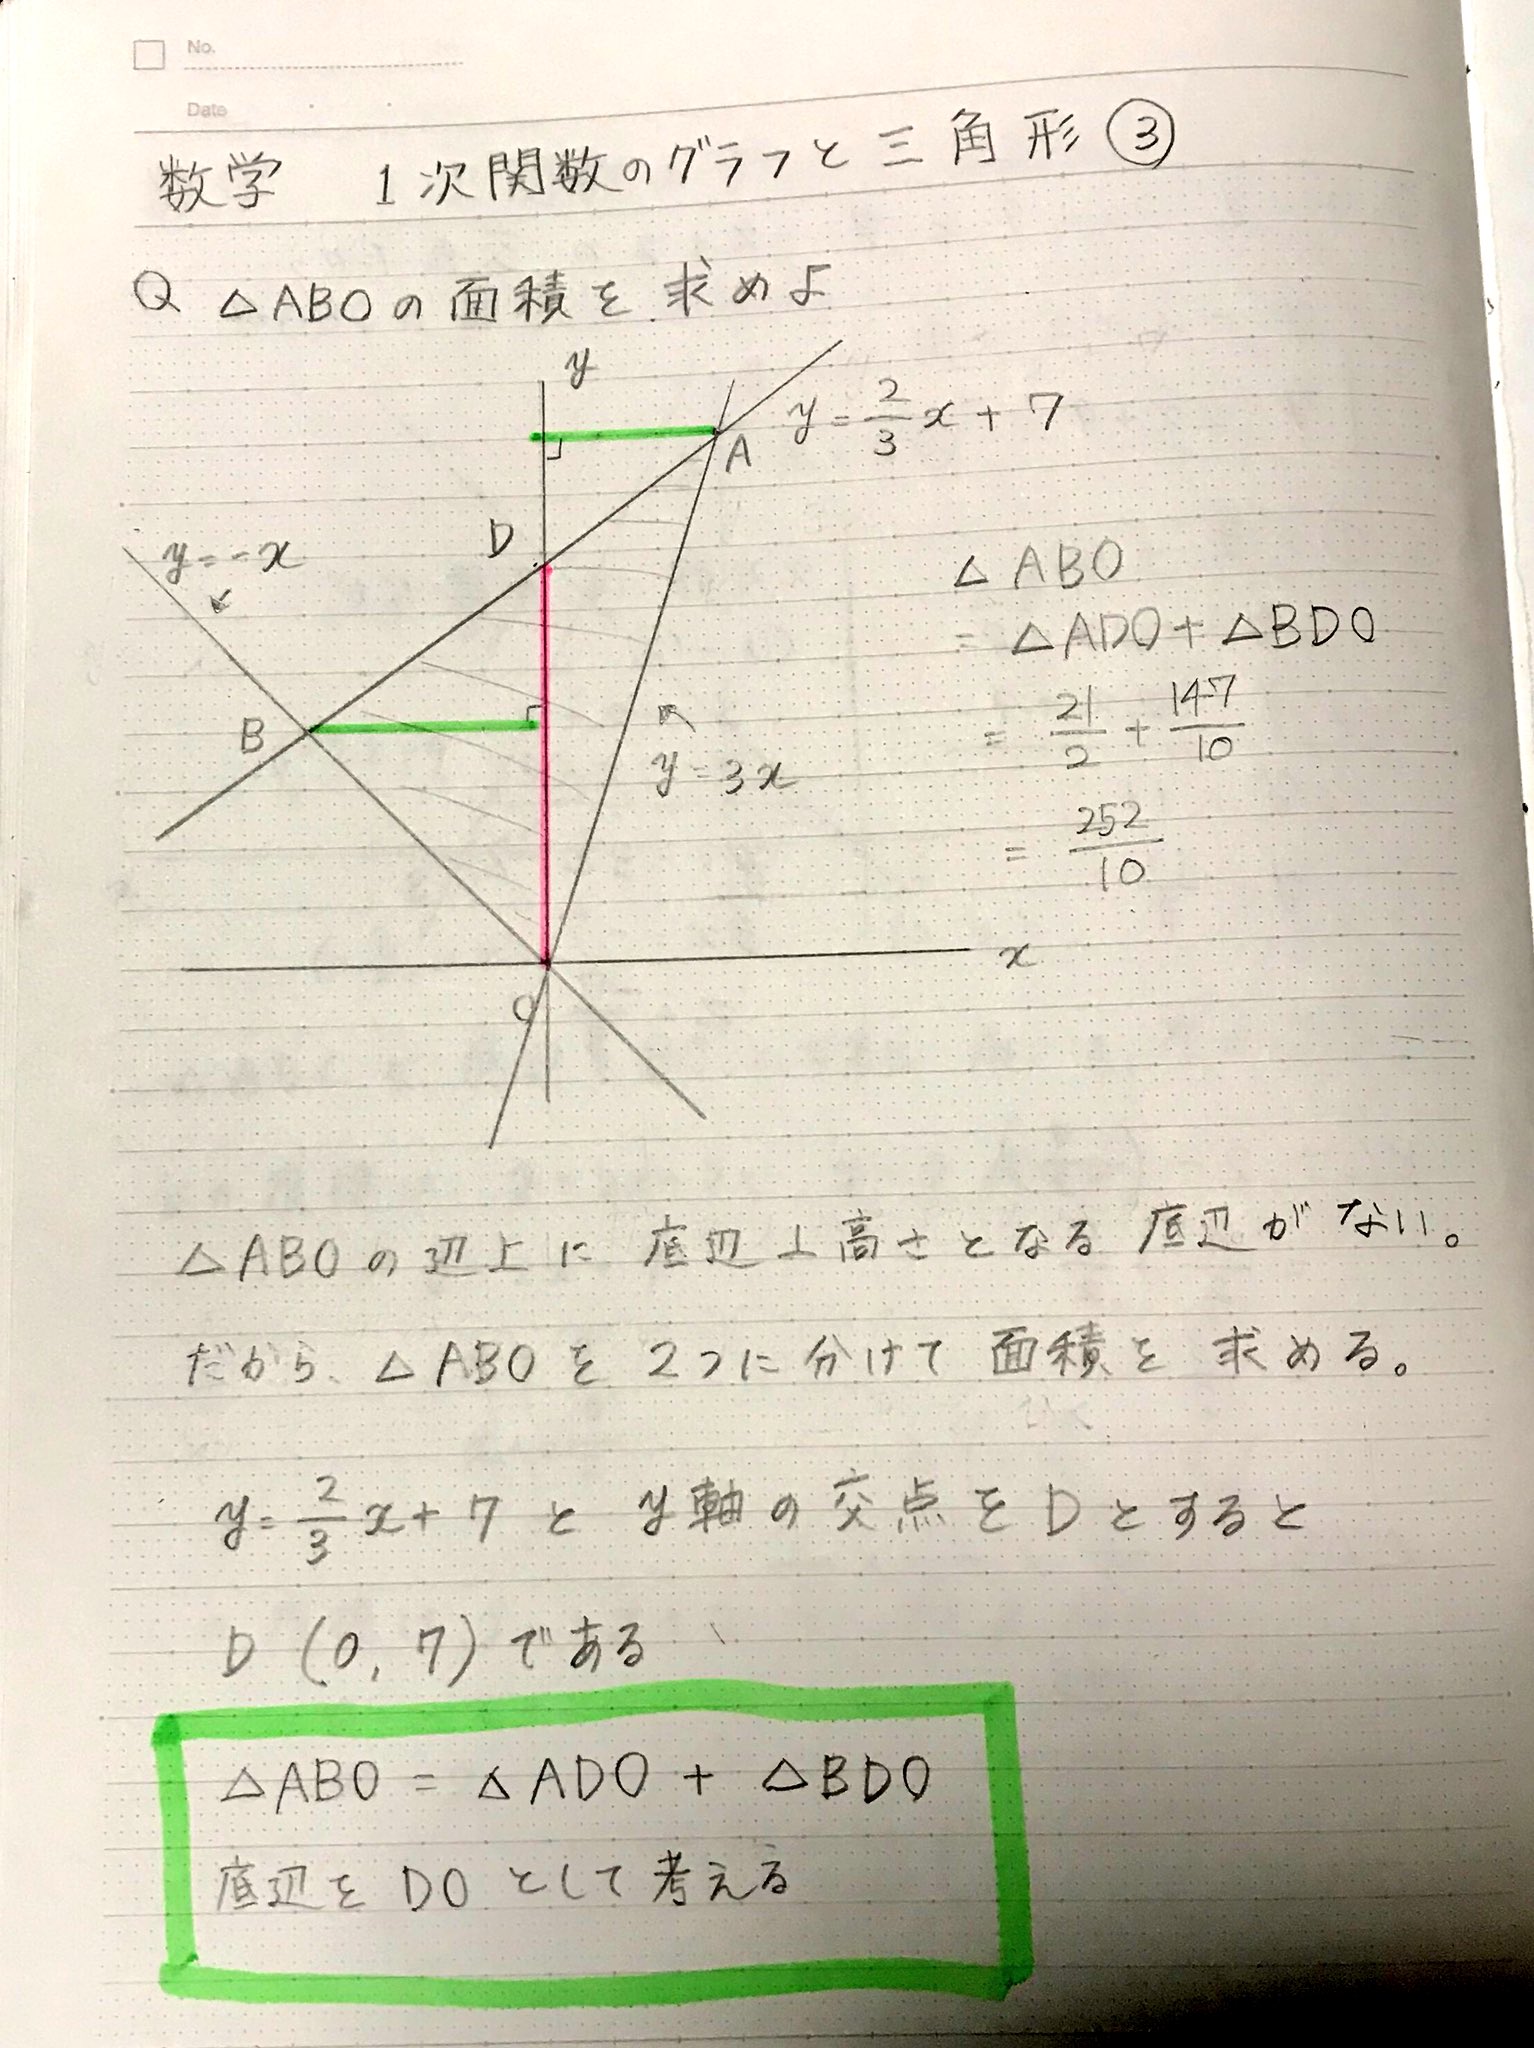 No.
Date
数学 1次関数のグラフと三角形③
Q △ABOの面積を求めよ
y
y=2/3x+7
A
D
y=-x
△ABO
=△ADO+△BDO
B
y=3x
=21/2+147/10
=252/10
x
O
△ABOの辺上に底辺⊥高さとなる底辺がない。
だから、△ABOを2つに分けて面積を求める。
y=2/3x+7とy軸の交点をDとすると
D(0,7)である
△ABO=△ADO+△BDO
底辺をDOとして考える